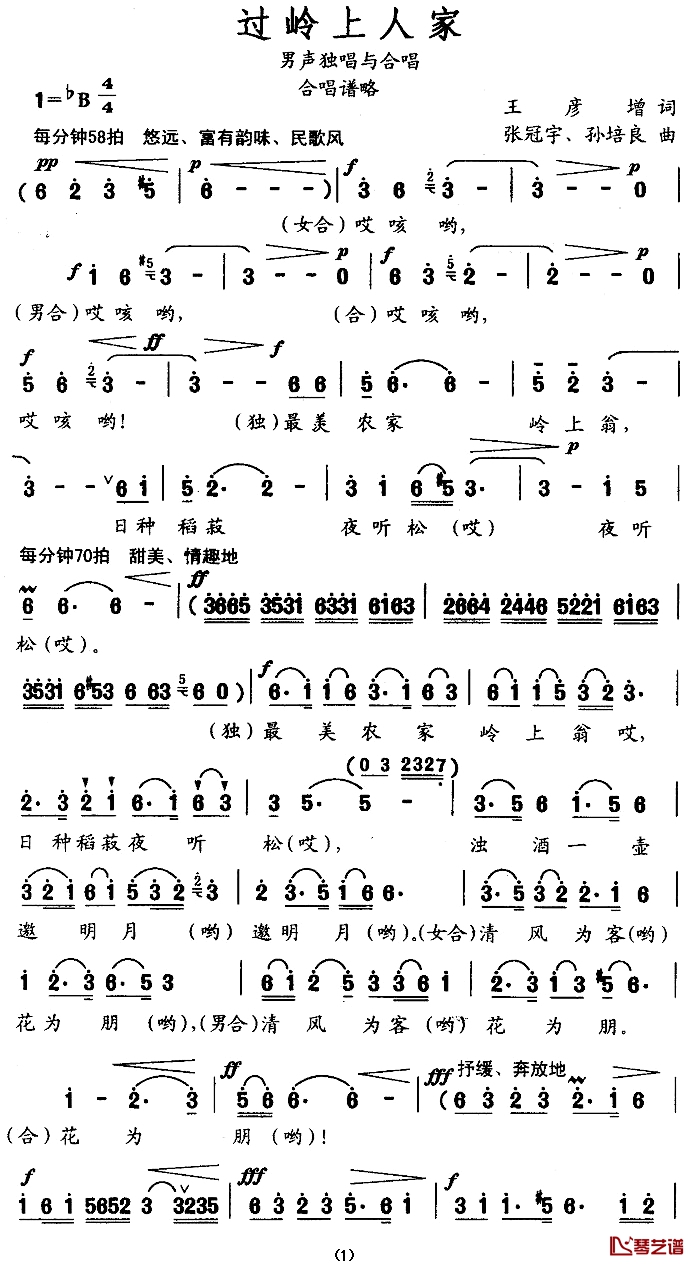 过岭上人家
男声独唱与合唱
合唱谱略
1=♭B 4/4
王彦增 词
每分钟58拍 悠远、富有韵味、民歌风
张冠宇、孙培良 曲
pp p f p
(6 2 3 #5 | 6 - - -) | 3 6 3 - | 3 - - 0
(女合)哎咳哟,
f p f p
1 6 3 - | 3 - - 0 | 6 5 2 - | 2 - - 0
(男合)哎咳哟, (合)哎咳哟,
f ff f
5 6 3 - | 3 - - 6 6 | 5 6· 6 - | 5 2 3 -
哎咳哟! (独)最美农家 岭上翁,
p
3 - - 6 1 | 5 2· 2 - | 3 1 6 #5 3· | 3 - 1 5
日种稻菽 夜听松(哎) 夜听
每分钟70拍 甜美、情趣地
ff
6 6· 6 - | (3665 3531 6331 6163 | 2664 2446 5221 6163
松(哎)。
f
3531 6#53 6 63 6 0) | 6·1 1 6 3·1 6 3 | 6 1 1 5 3 2 3·
(独)最美农家 岭上翁哎,
(0 3 2327)
2·3 2 1 6·1 6 3 | 3 5· 5 - | 3·5 6 1·5 6
日种稻菽夜听 松(哎), 浊酒一壶
3 2 1 6 1 5 3 2 3 | 2 3·5 1 6 6· | 3·5 3 2 2·1 6
邀明月(哟)邀明月(哟)。(女合)清风为客(哟)
1 2·3 6·5 3 | 6 1 2 5 3 3 6 1 | 2·3 1 3 #5 6·
花为朋(哟),(男合)清风为客(哟)花为朋。
ff fff 抒缓、奔放地
1 - 2· 3 | 5 6 6· 6 - | (6 3 2 3 2·1 6
(合)花为朋(哟)!
f fff f
1 6 1 5652 3 3235 | 6 3 2 3 5·6 1 | 3 1 1· #5 6· 1 2
(1)
琴艺谱